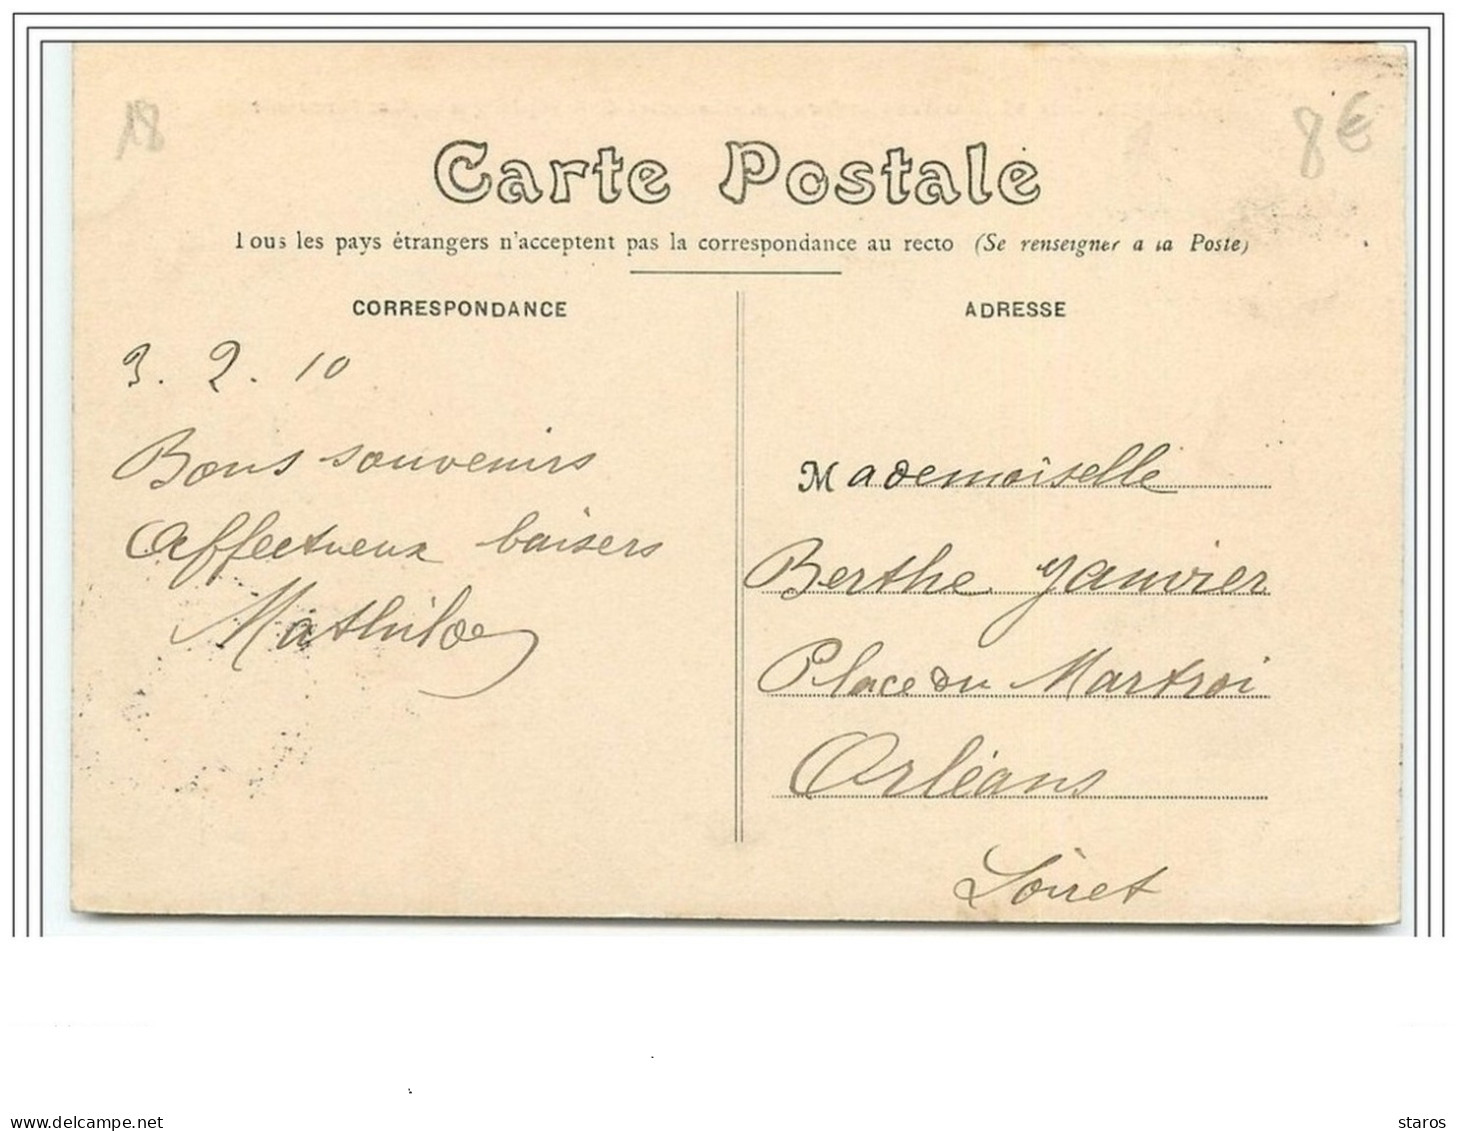 18
8€
Carte Postale
Tous les pays étrangers n'acceptent pas la correspondance au recto (Se renseigner à la Poste)
CORRESPONDANCE
3. 2. 10
Bons souvenirs
Affectueux baisers
Mathilde
ADRESSE
Mademoiselle
Berthe Janvier
Place du Martroi
Orléans
Loiret
delcampe.net
staros